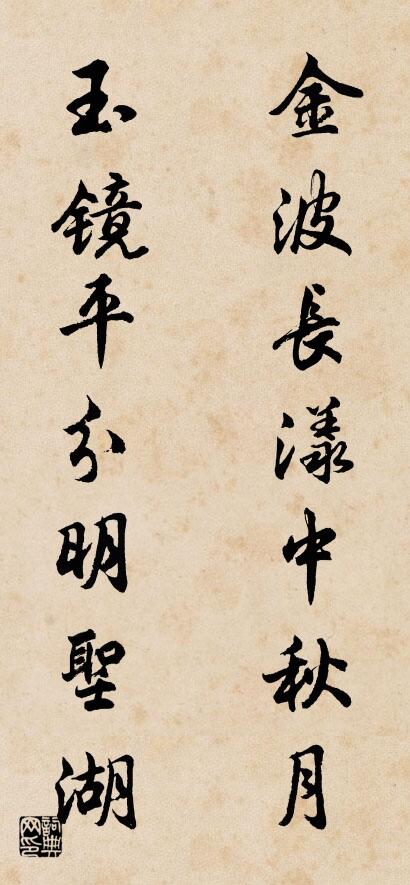 金波長漾中秋月
玉鏡平分明聖湖